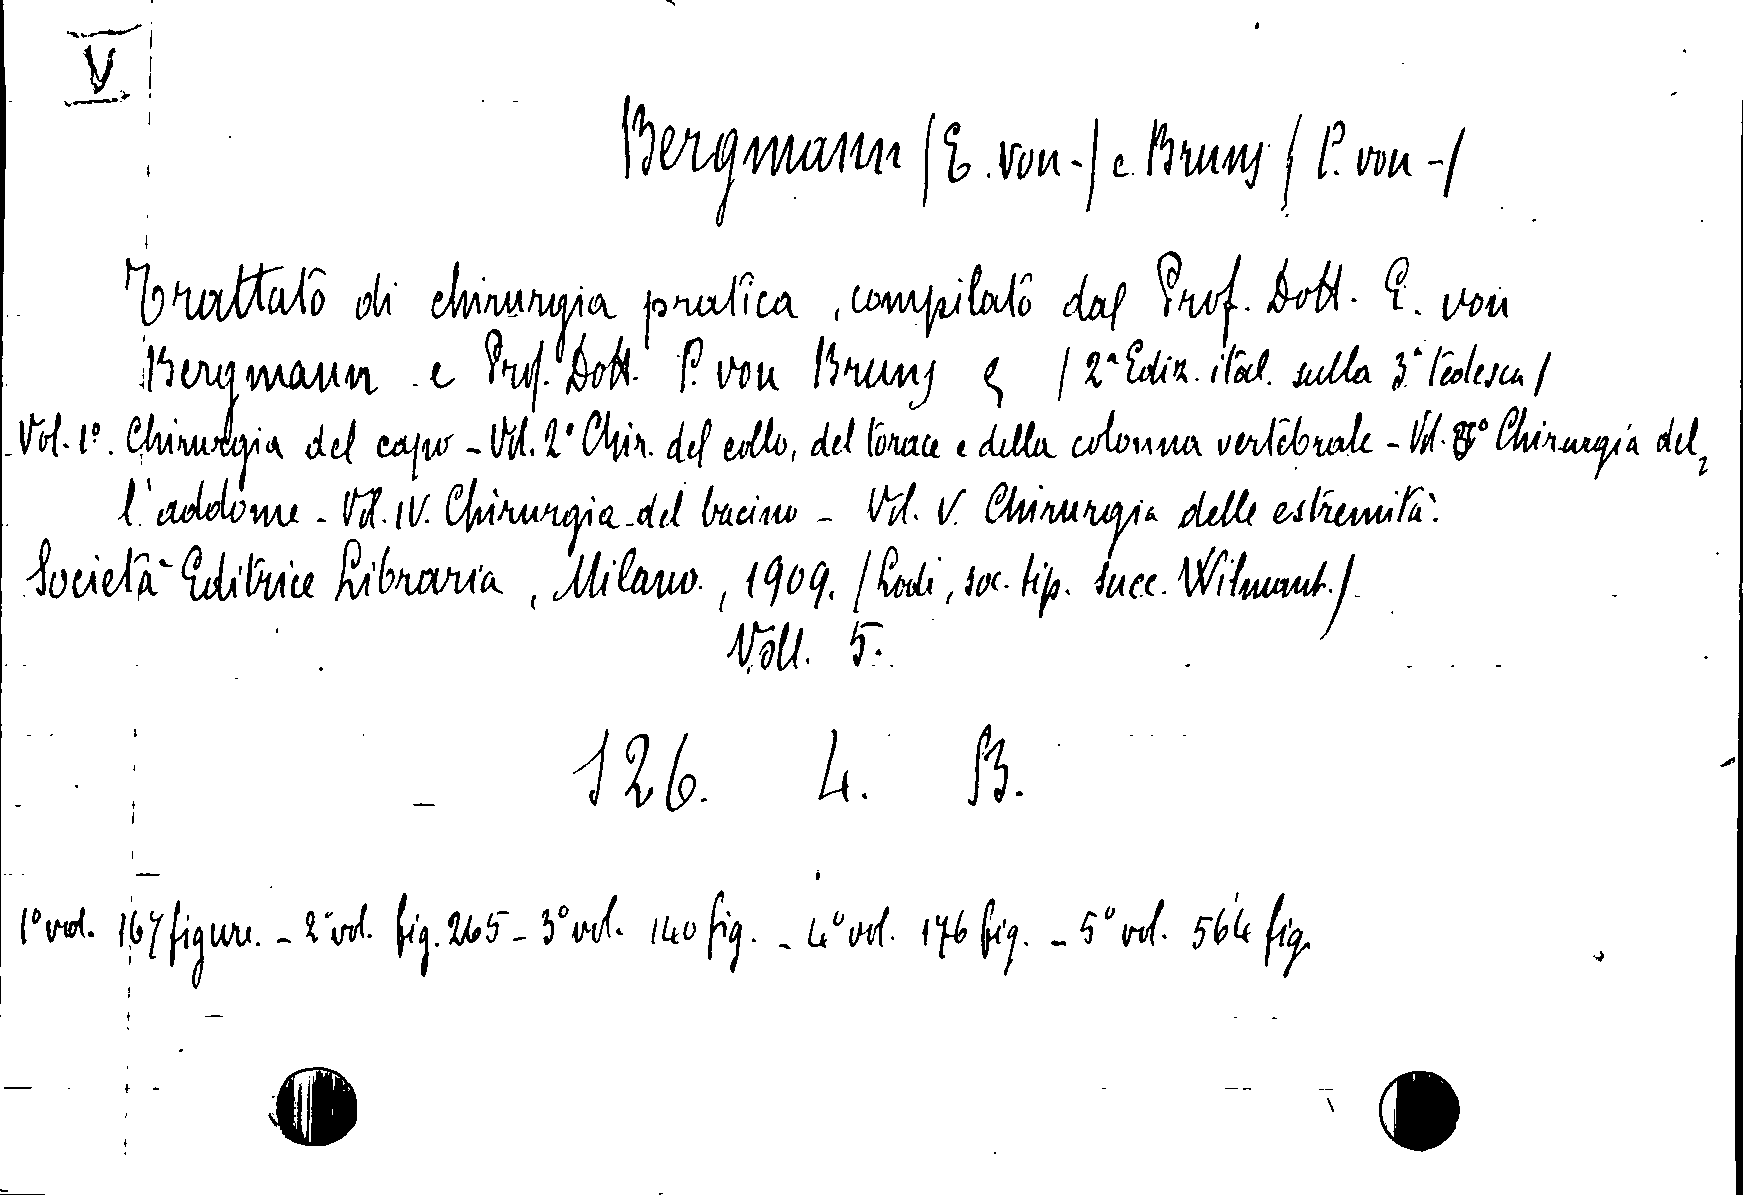 V
Bergmann (E. von-) e Bruns (P. von-)
Trattato di chirurgia pratica, compilato dal Prof. Dott. E. von
Bergmann e Prof. Dott. P. von Bruns (2ª Ediz. ital. sulla 3ª tedesca)
Vol. 1º. Chirurgia del capo - Vol. 2º Chir. del collo, del torace e della colonna vertebrale - Vol. 3º Chirurgia del,
l'addome - Vol. IV. Chirurgia del bacino - Vol. V. Chirurgia delle estremità.
Società Editrice Libraria, Milano, 1909. (Lodi, soc. tip. succ. Wilmant.)
Voll. 5.
126. 4. B.
1º vol. 167 figure. - 2º vol. fig. 265 - 3º vol. 140 fig. - 4º vol. 176 fig. - 5º vol. 564 fig.